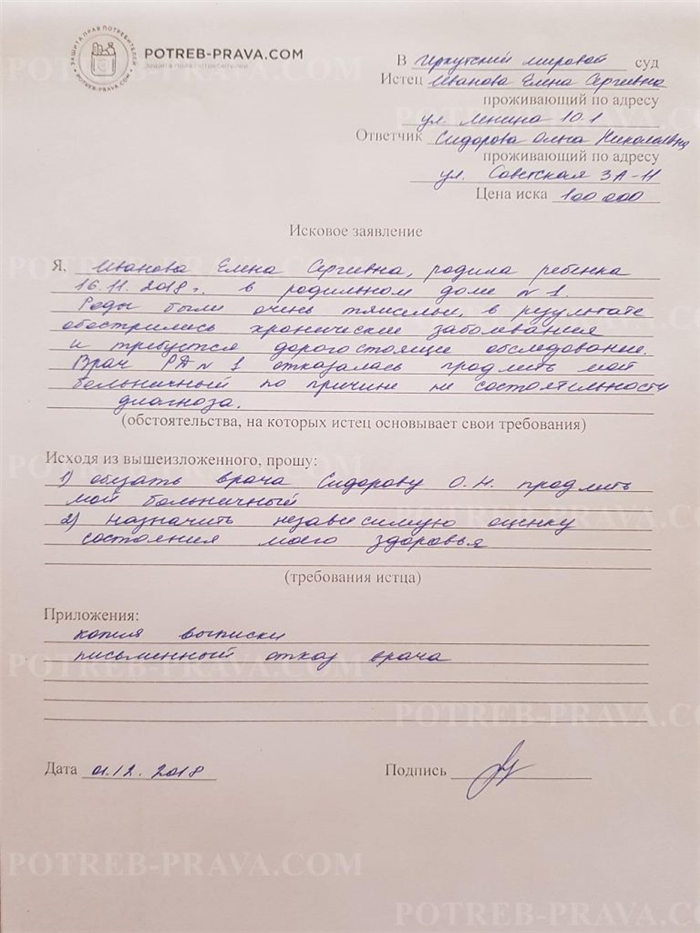 ЗАЩИТА ПРАВ ПОТРЕБИТЕЛЕЙ
POTREB-PRAVA.COM
POTREB-PRAVA.COM
В Иркутский мировой суд
Истец Иванова Елена Сергиевна
проживающий по адресу
ул. Ленина 10.1
Ответчик Сидорова Ольга Николаевна
проживающий по адресу
ул. Советская 3А-11
Цена иска 100 000
Исковое заявление
Я, Иванова Елена Сергиевна, родила ребенка
16.11.2018г. в родильном доме №1.
Роды были очень тяжелыи, в результате
обострились хронические заболевания
и требуется дорогостоящие обследование.
Врач РД №1 отказалась продлить мой
больничный по причине не состоятельности
диагноза.
(обстоятельства, на которых истец основывает свои требования)
Исходя из вышеизложенного, прошу:
1) обязать врача Сидорову О.Н. продлить
мой больничный
2) назначить независимую оценку
состояния моего здоровья
(требования истца)
Приложения:
копия выписки
письменный отказ врача
Дата 01.12.2018 Подпись
POTREB-PRAVA.COM
POTREB-PRAVA.COM